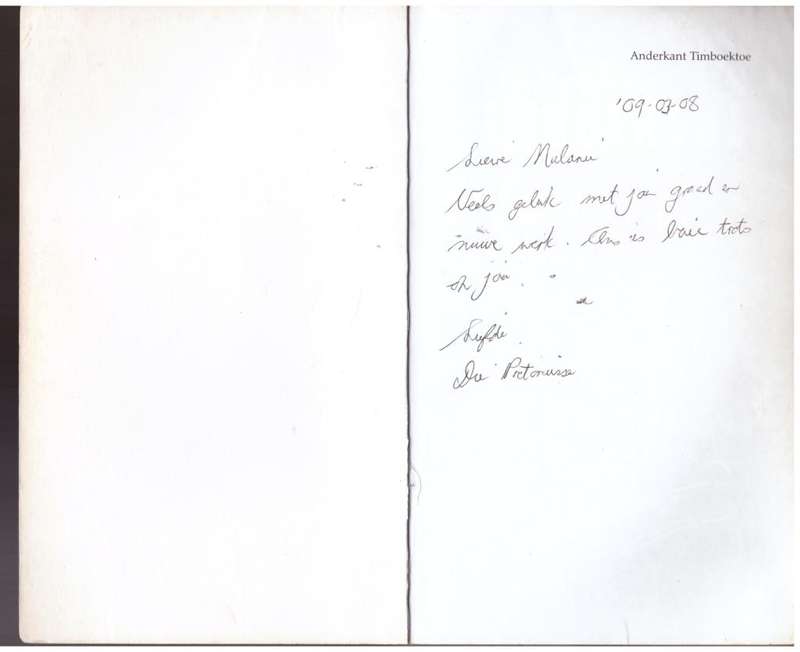 Anderkant Timboektoe
'09-03-08
Liewe Melanie
Veels geluk met jou graad en
nuwe werk. Ons is baie trots
op jou.
Liefde
Die Pretoriusse